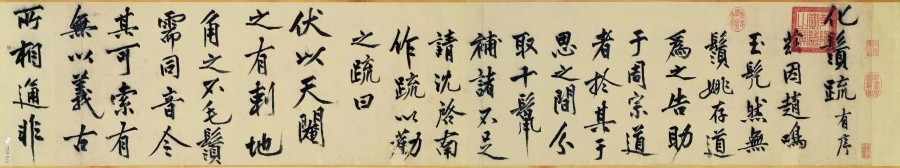 化鬚疏有序
兹因趙鳴
玉髡然無
鬚姚存道
為之告助
于周宗道
者於其于
思之間分
取十鬣
補諸不足
請沈啓南
作疏以勸
之疏曰
伏以天閹
之有刺地
角之不毛鬚
需同音今
其可索有
無以義古
所相通非